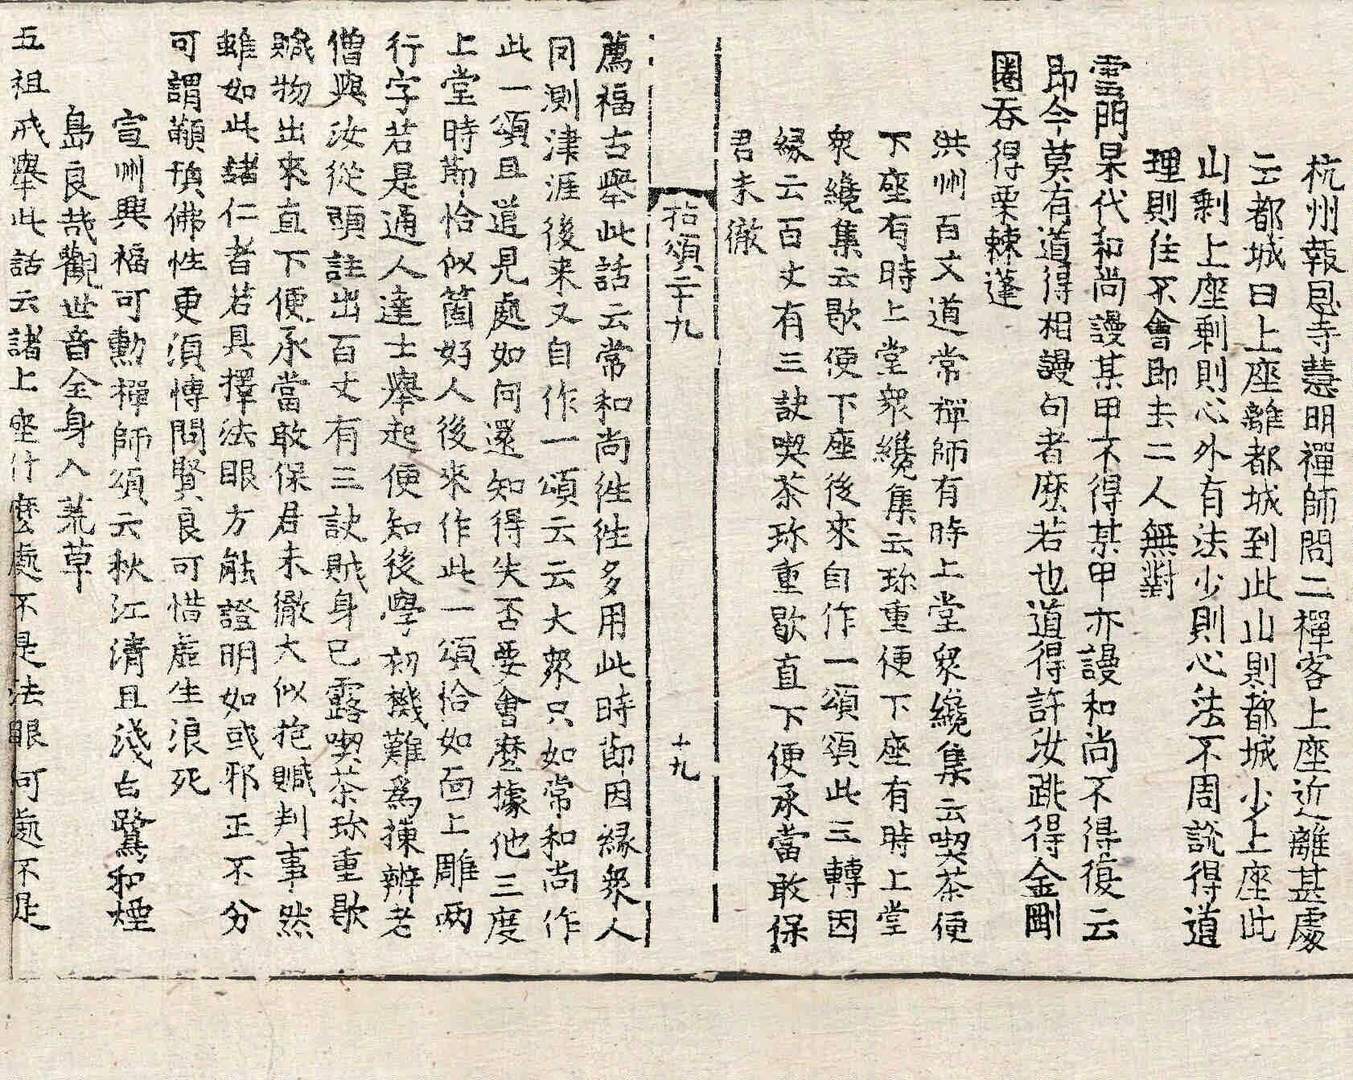 杭州報恩寺慧明禪師問二禪客上座近離甚處
云都城曰上座離都城到此山則都城少上座此
山剩上座剩則心外有法少則心法不周說得道
理則住不會即去二人無對
雲門杲代和尚謾某甲不得某甲亦謾和尚不得復云
即今莫有道得相謾句者麽若也道得許汝跳得金剛
圈吞得栗棘蓬
洪州百丈道常禪師有時上堂衆纔集云喫茶便
下座有時上堂衆纔集云珎重便下座有時上堂
衆纔集云歇便下座後來自作一頌頌此三轉因
緣云百丈有三訣喫茶珎重歇直下便承當敢保
君未徹
拈頌二十九
十九
薦福古舉此話云常和尚徃徃多用此時節因緣衆人
罔測津涯後来又自作一頌云云大衆只如常和尚作
此一頌且道見處如何還知得失否要會麽據他三度
上堂時節恰似箇好人後來作此一頌恰如面上雕兩
行字若是通人達士舉起便知後學初機難爲揀辨老
僧與汝從頭註出百丈有三訣賊身已露喫茶珎重歇
贓物出來直下便承當敢保君未徹大似抱贓判事然
雖如此諸仁者若具擇法眼方能證明如或邪正不分
可謂顢頇佛性更須愽問賢良可惜虛生浪死
宣州興福可勳禪師頌云秋江清且淺白鷺和煙
島良哉觀世音全身入荒草
五祖戒舉此話云諸上座什麽處不是法眼何處不是